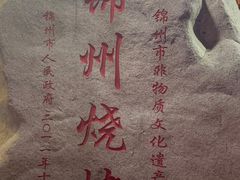 锦州市非物质文化遗产
锦州烧
锦州市人民政府二〇一一年十